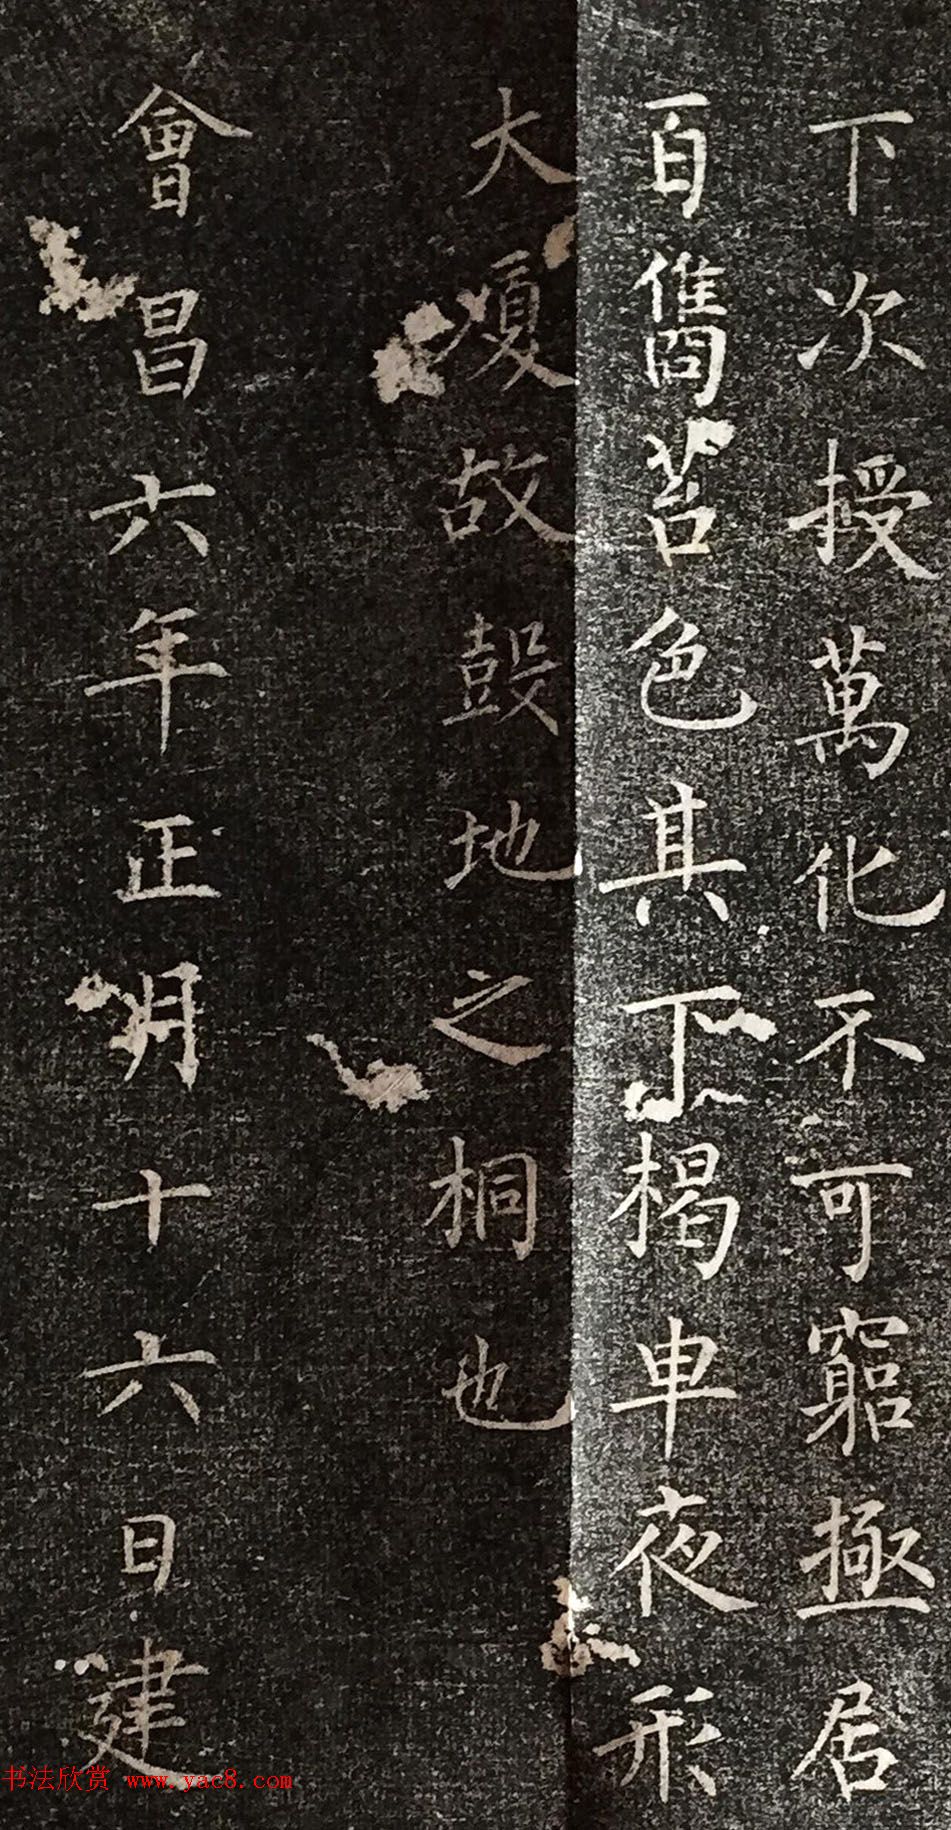 下次授萬化不可窮極居
百苔色其下楬車夜形
大故鼓地之桐也
會昌六年正月十六日建
书法欣赏 www.yac8.com